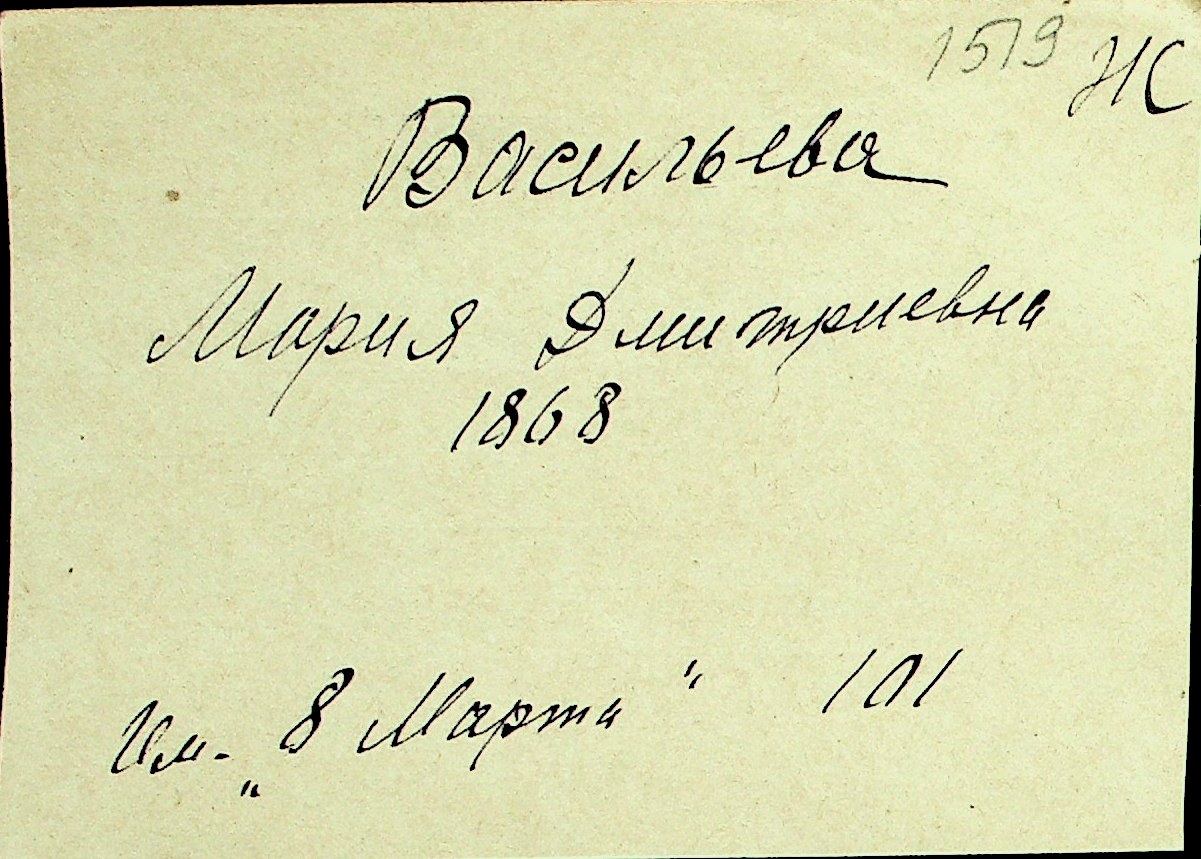 1519 НС
Васильева
Мария Дмитриевна
1868
Им. „8 Марта“ 101